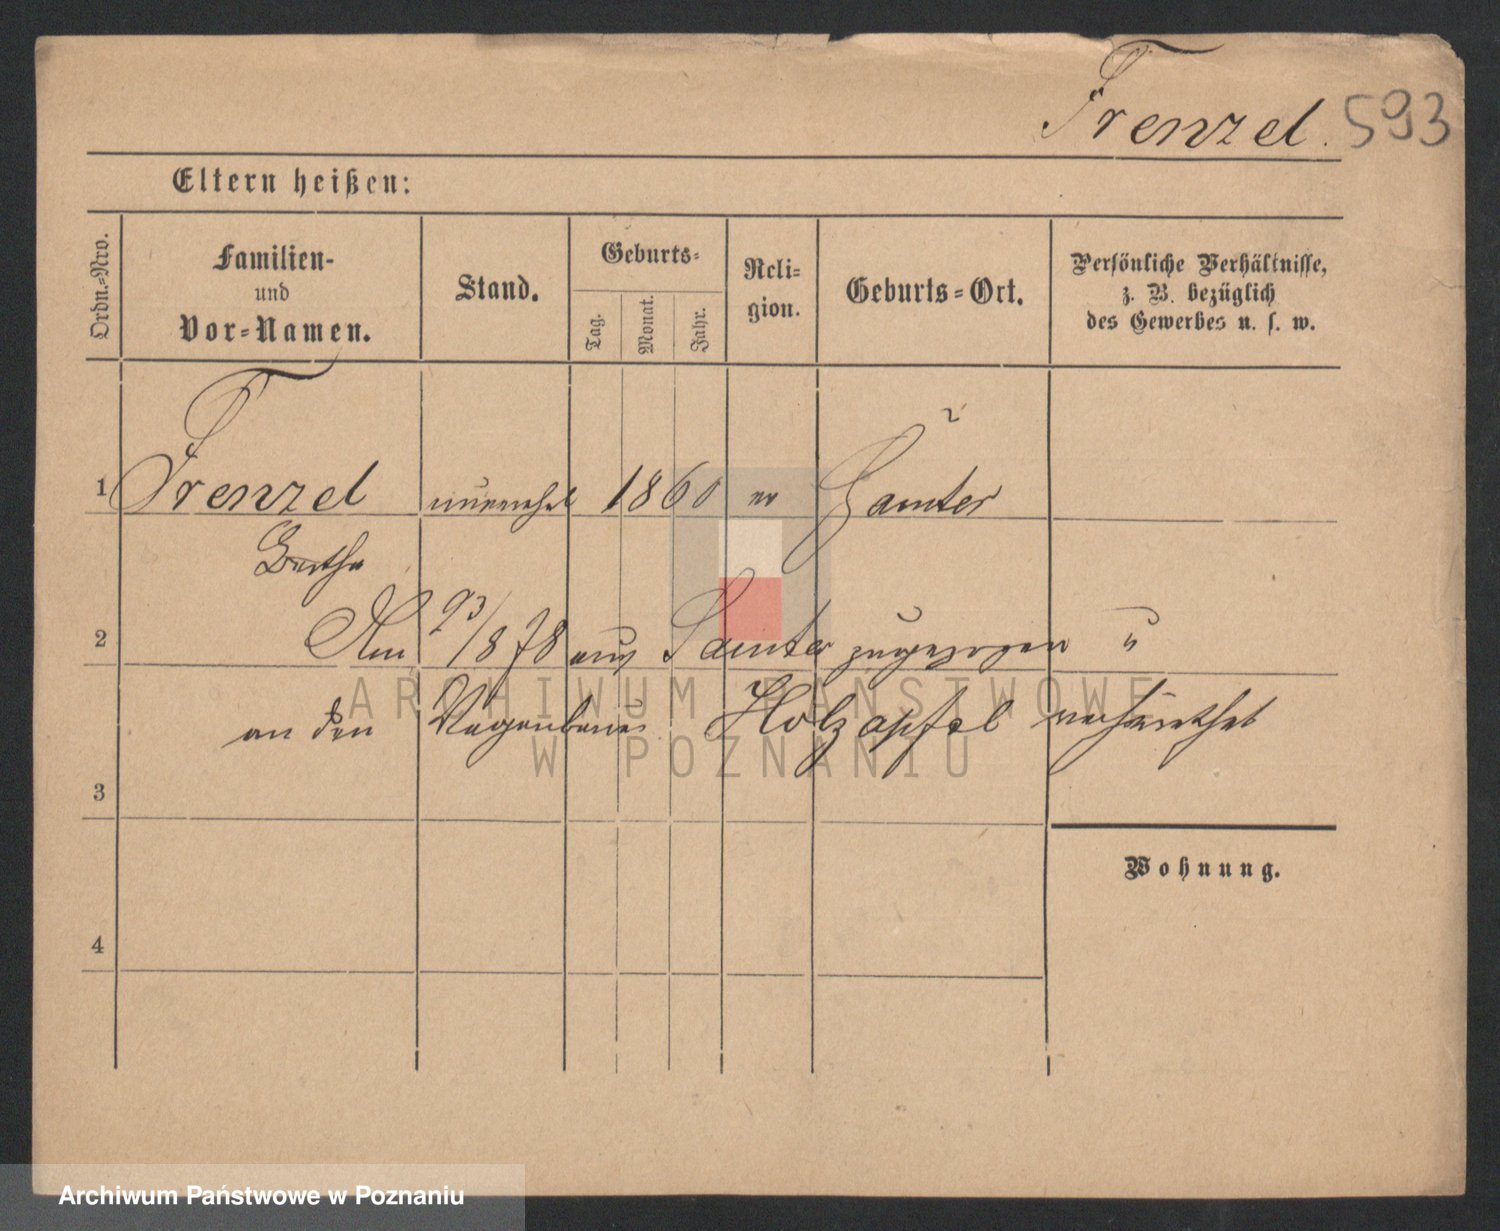 Frenzel. 593
Eltern heißen:
Ordn.-Nro.
Familien-
und
Vor-Namen.
Stand.
Geburts-
Tag.
Monat.
Jahr.
Reli-
gion.
Geburts-Ort.
Persönliche Verhältnisse,
z. B. bezüglich
des Gewerbes u. s. w.
1 Frenzel unverehel 1860 ev Samter
Bertha
2 Am /878 aus Samter zugezogen u
an den Holzapfel verheirathet
3
Wohnung.
4
ARCHIWUM PAŃSTWOWE
W POZNANIU
Archiwum Państwowe w Poznaniu